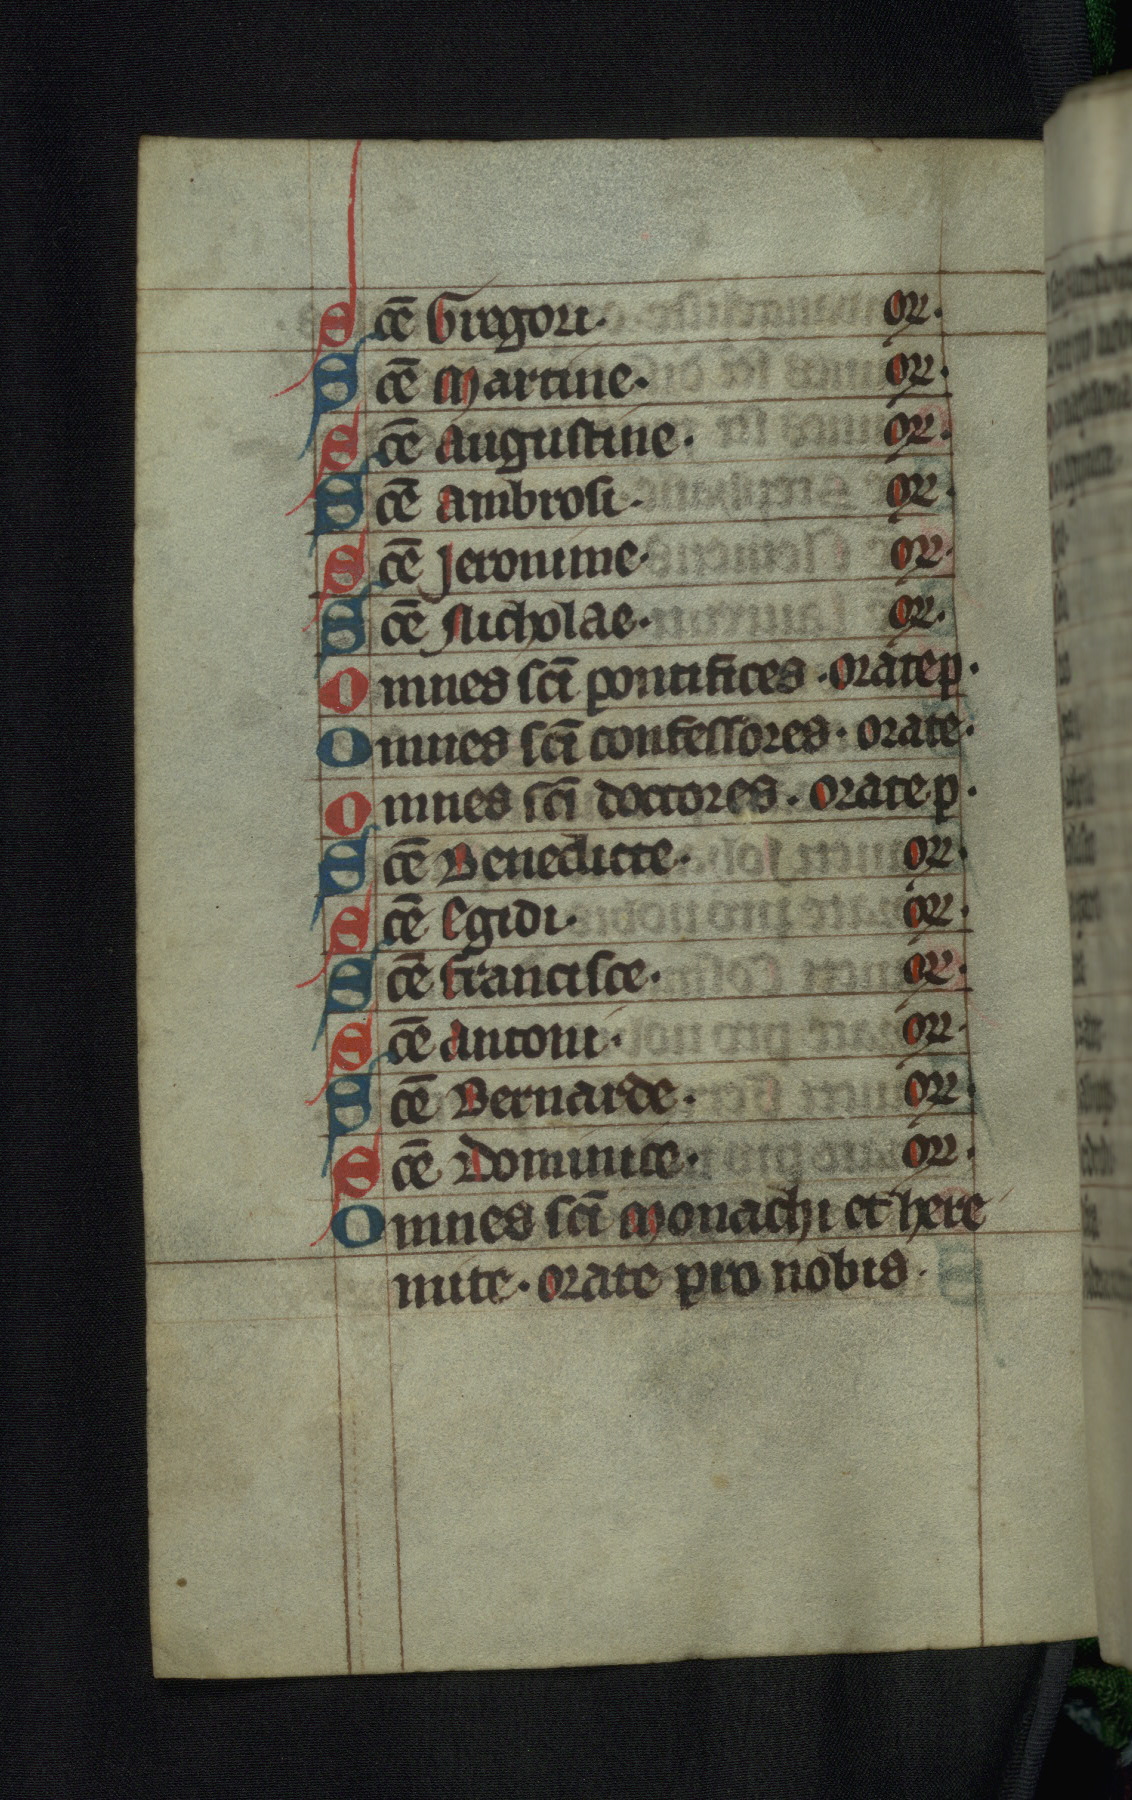 Scē Gregori. or.
Scē Martine. or.
Scē Augustine. or.
Scē Ambrosi. or.
Scē Jeronime. or.
Scē Nicholae. or.
Omnes scī pontifices. orate p.
Omnes scī confessores. orate.
Omnes scī doctores. orate p.
Scē Benedicte. or.
Scē Egidi. or.
Scē Francisce. or.
Scē Antoni. or.
Scē Bernarde. or.
Scē Dominice. or.
Omnes scī Monachi et here
mite. orate pro nobis.